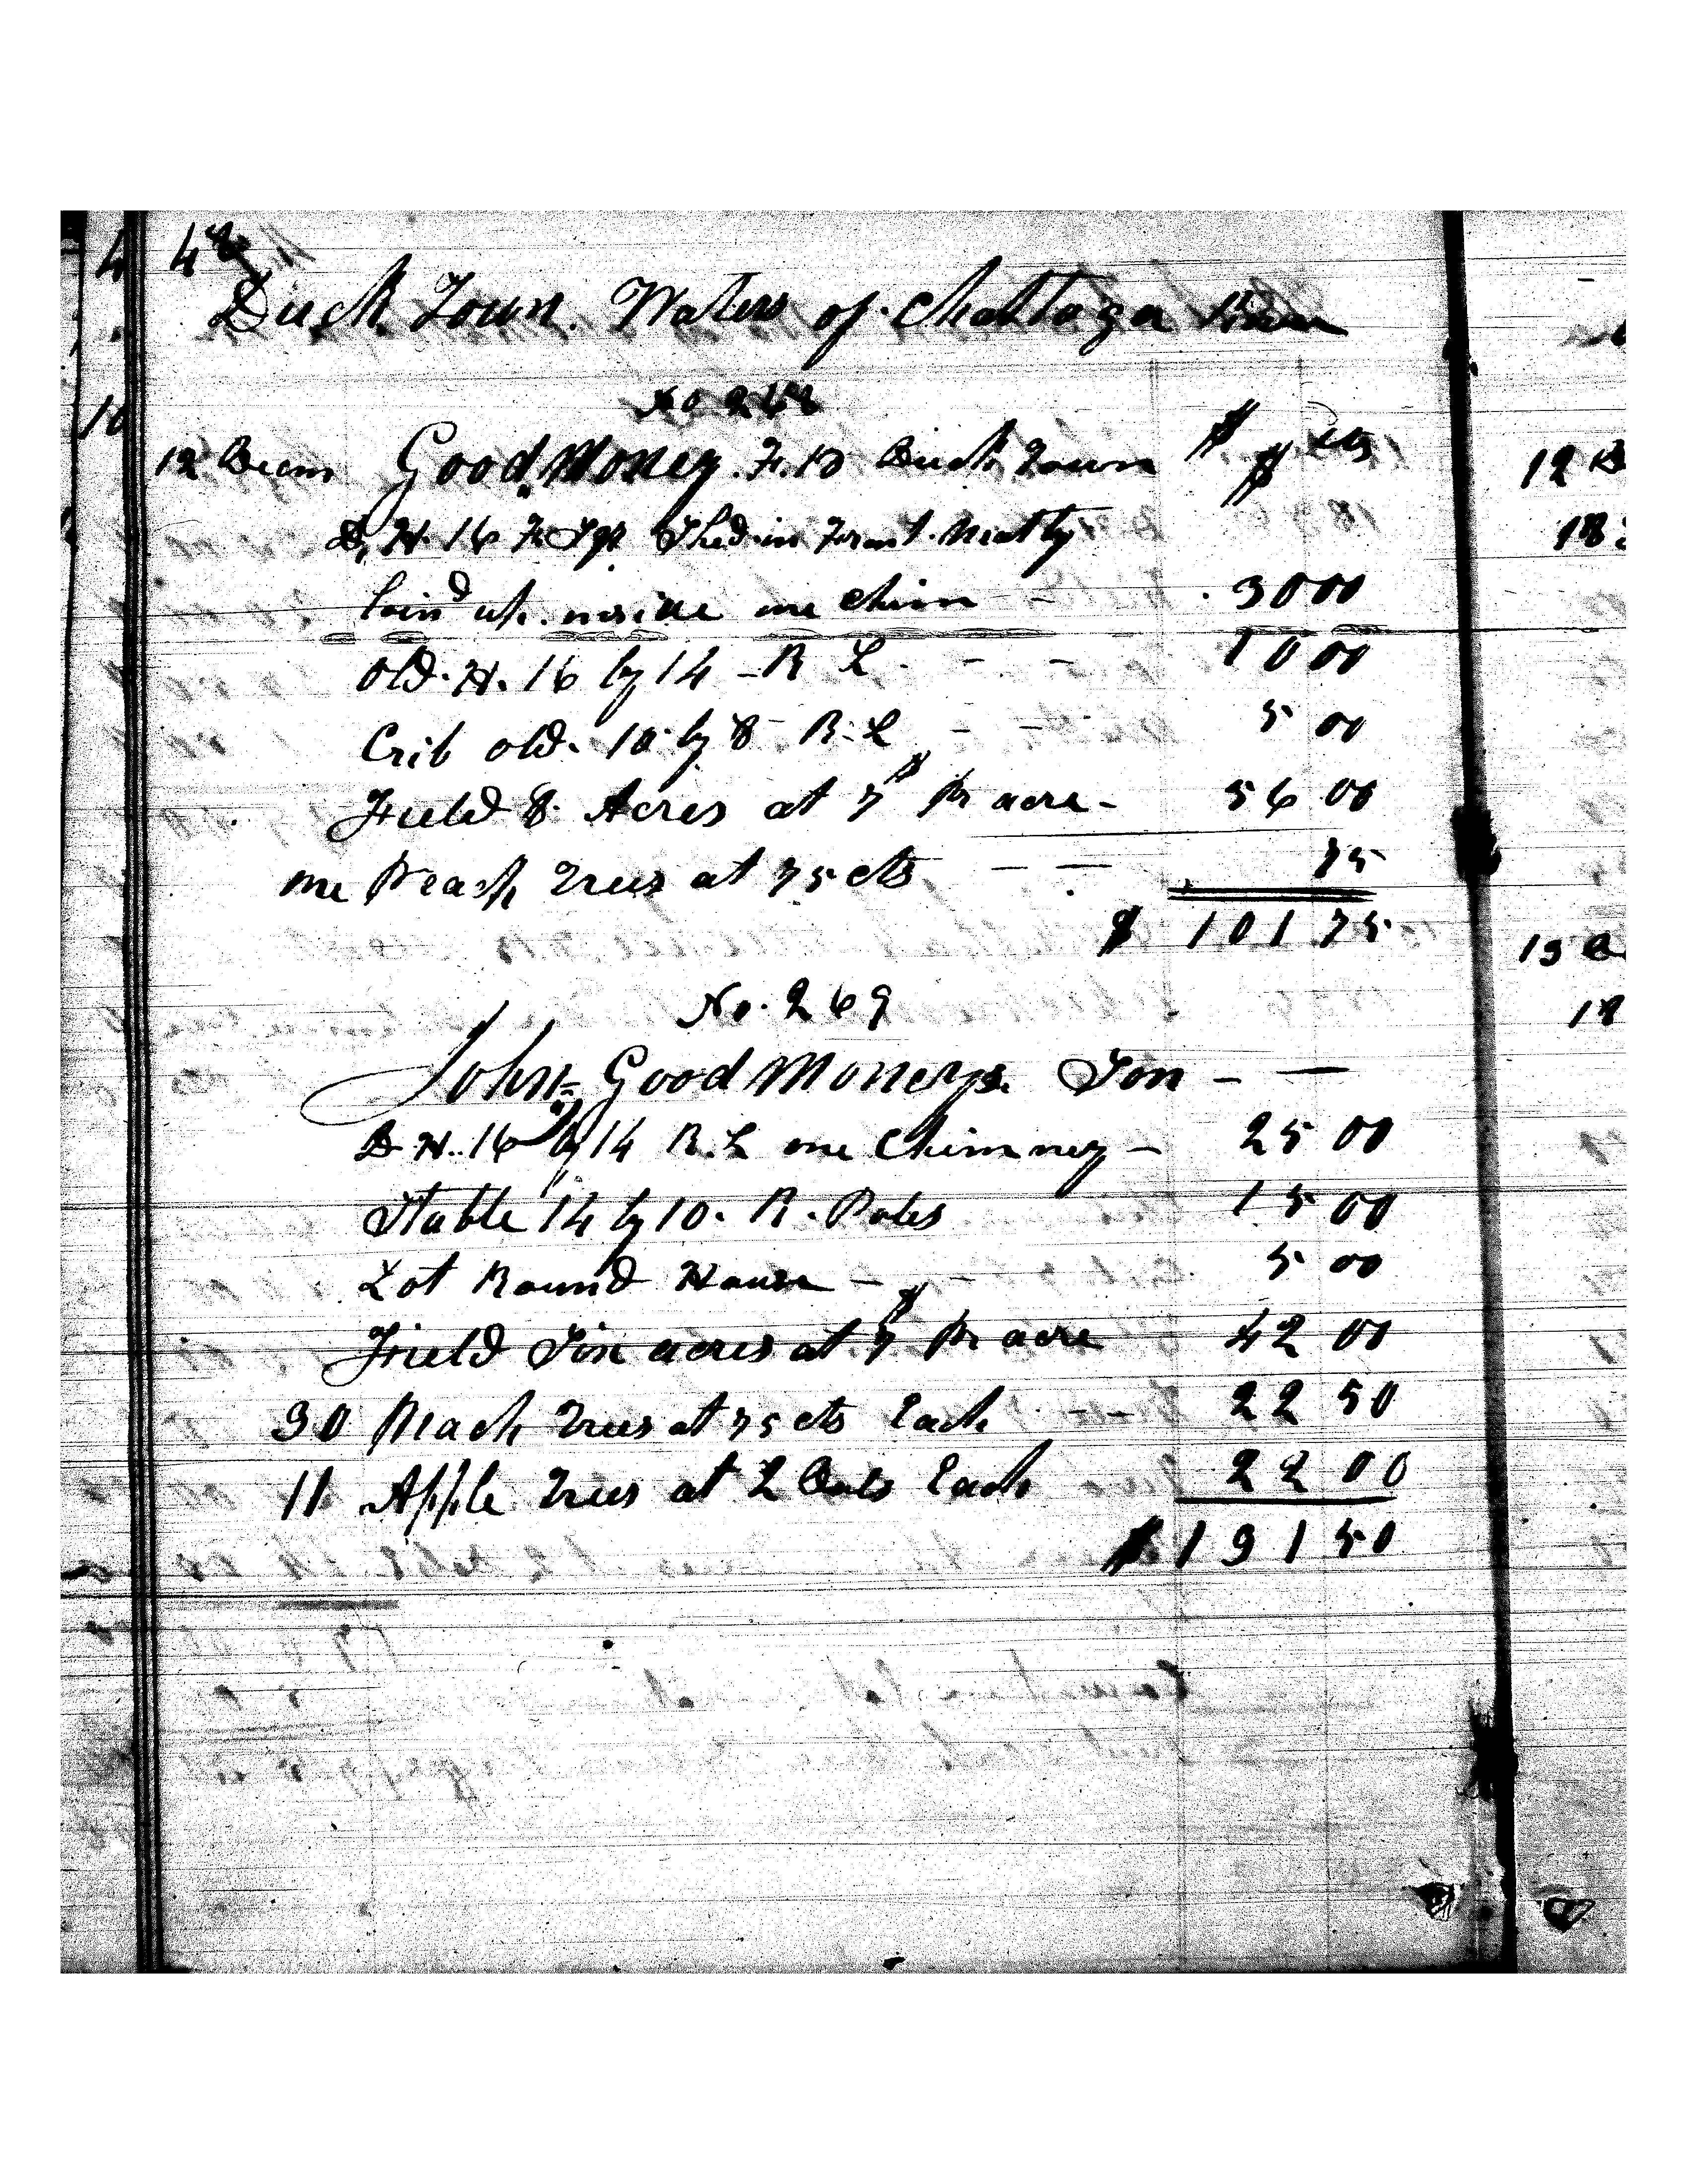 48
Duck Town. Waters of Chattoga River
No 268
$ cts
12 Decem Good Money. F. B Duck Town $
D, H. 16 F. Sqr Shed in Front. Neatly
laind up. inside one chim - 30 00
Old. H. 16 by 14 - R L. - - 10 00
Crib old. 10 by 8 R. L - - 5 00
Field 8. Acres at 7$ pr acre - 56 00
one Peach Trees at 75 cts - - 75
$ 101 75
No. 269
John, Good Moneys. Son - -
D. H. 16 by 14 R. L one Chimney - 25 00
Stable 14 by 10. R. Poles 15 00
Lot Round House - - 5 00
Field Six acres at 7$ pr acre 42 00
30 Peach Trees at 75 cts Each - - 22 50
11 Apple Trees at 2 Dols Each 22 00
$ 131 50